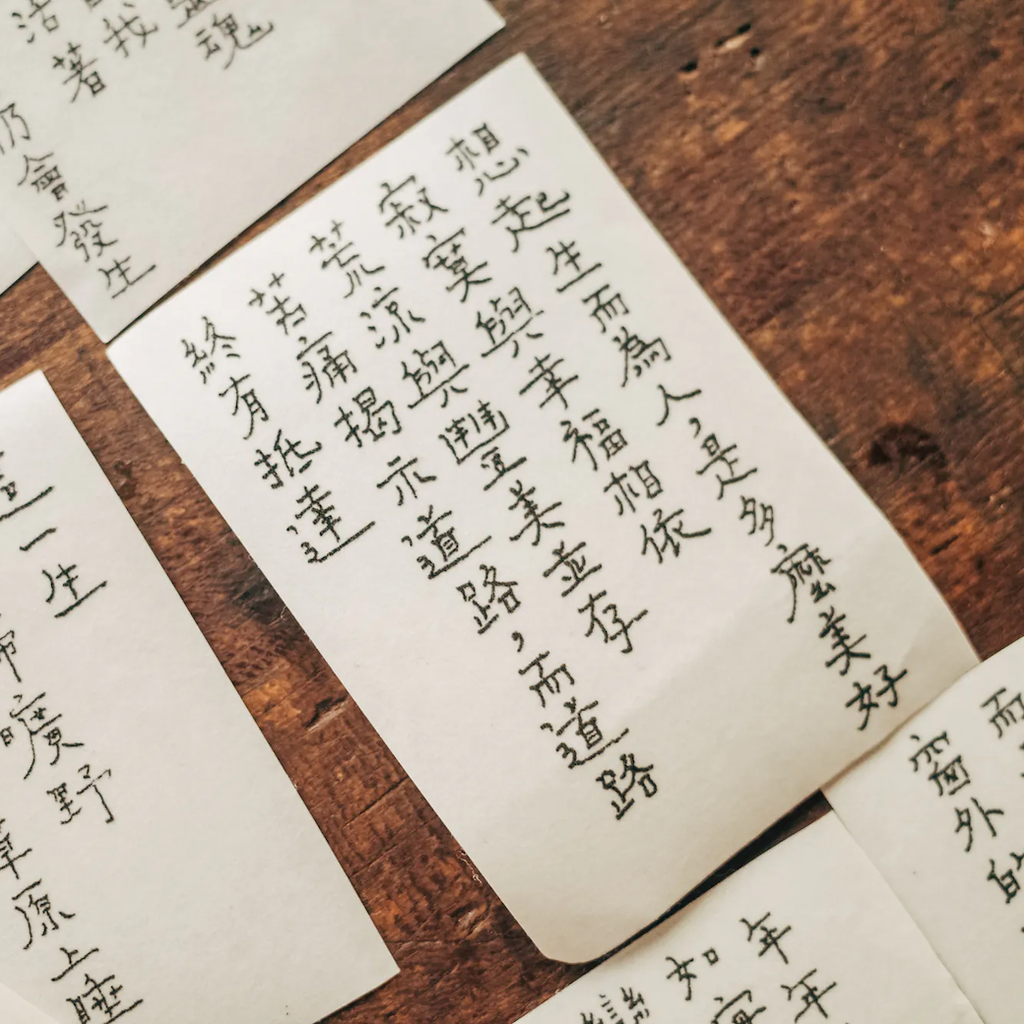 魂
我
活著
仍會發生
想起生而為人，是多麼美好
寂寞與幸福相依
荒涼與豐美並存
苦痛揭示道路，而道路
終有抵達
一生
曠野
草原上睡
而
窗外的
年年
如